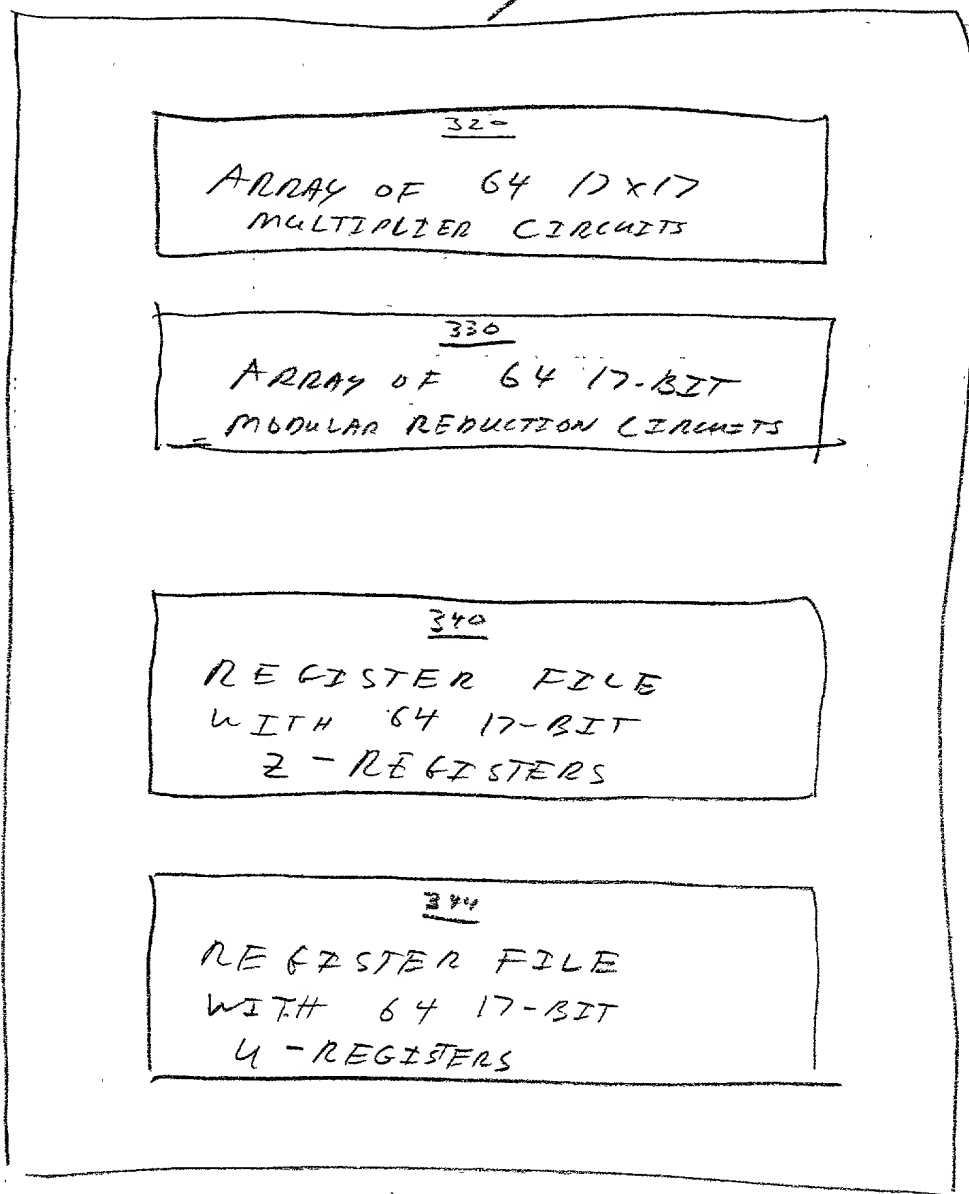 320
ARRAY OF 64 17x17
MULTIPLIER CIRCUITS
330
ARRAY OF 64 17-BIT
MODULAR REDUCTION CIRCUITS
340
REGISTER FILE
WITH 64 17-BIT
Z-REGISTERS
344
REGISTER FILE
WITH 64 17-BIT
U-REGISTERS